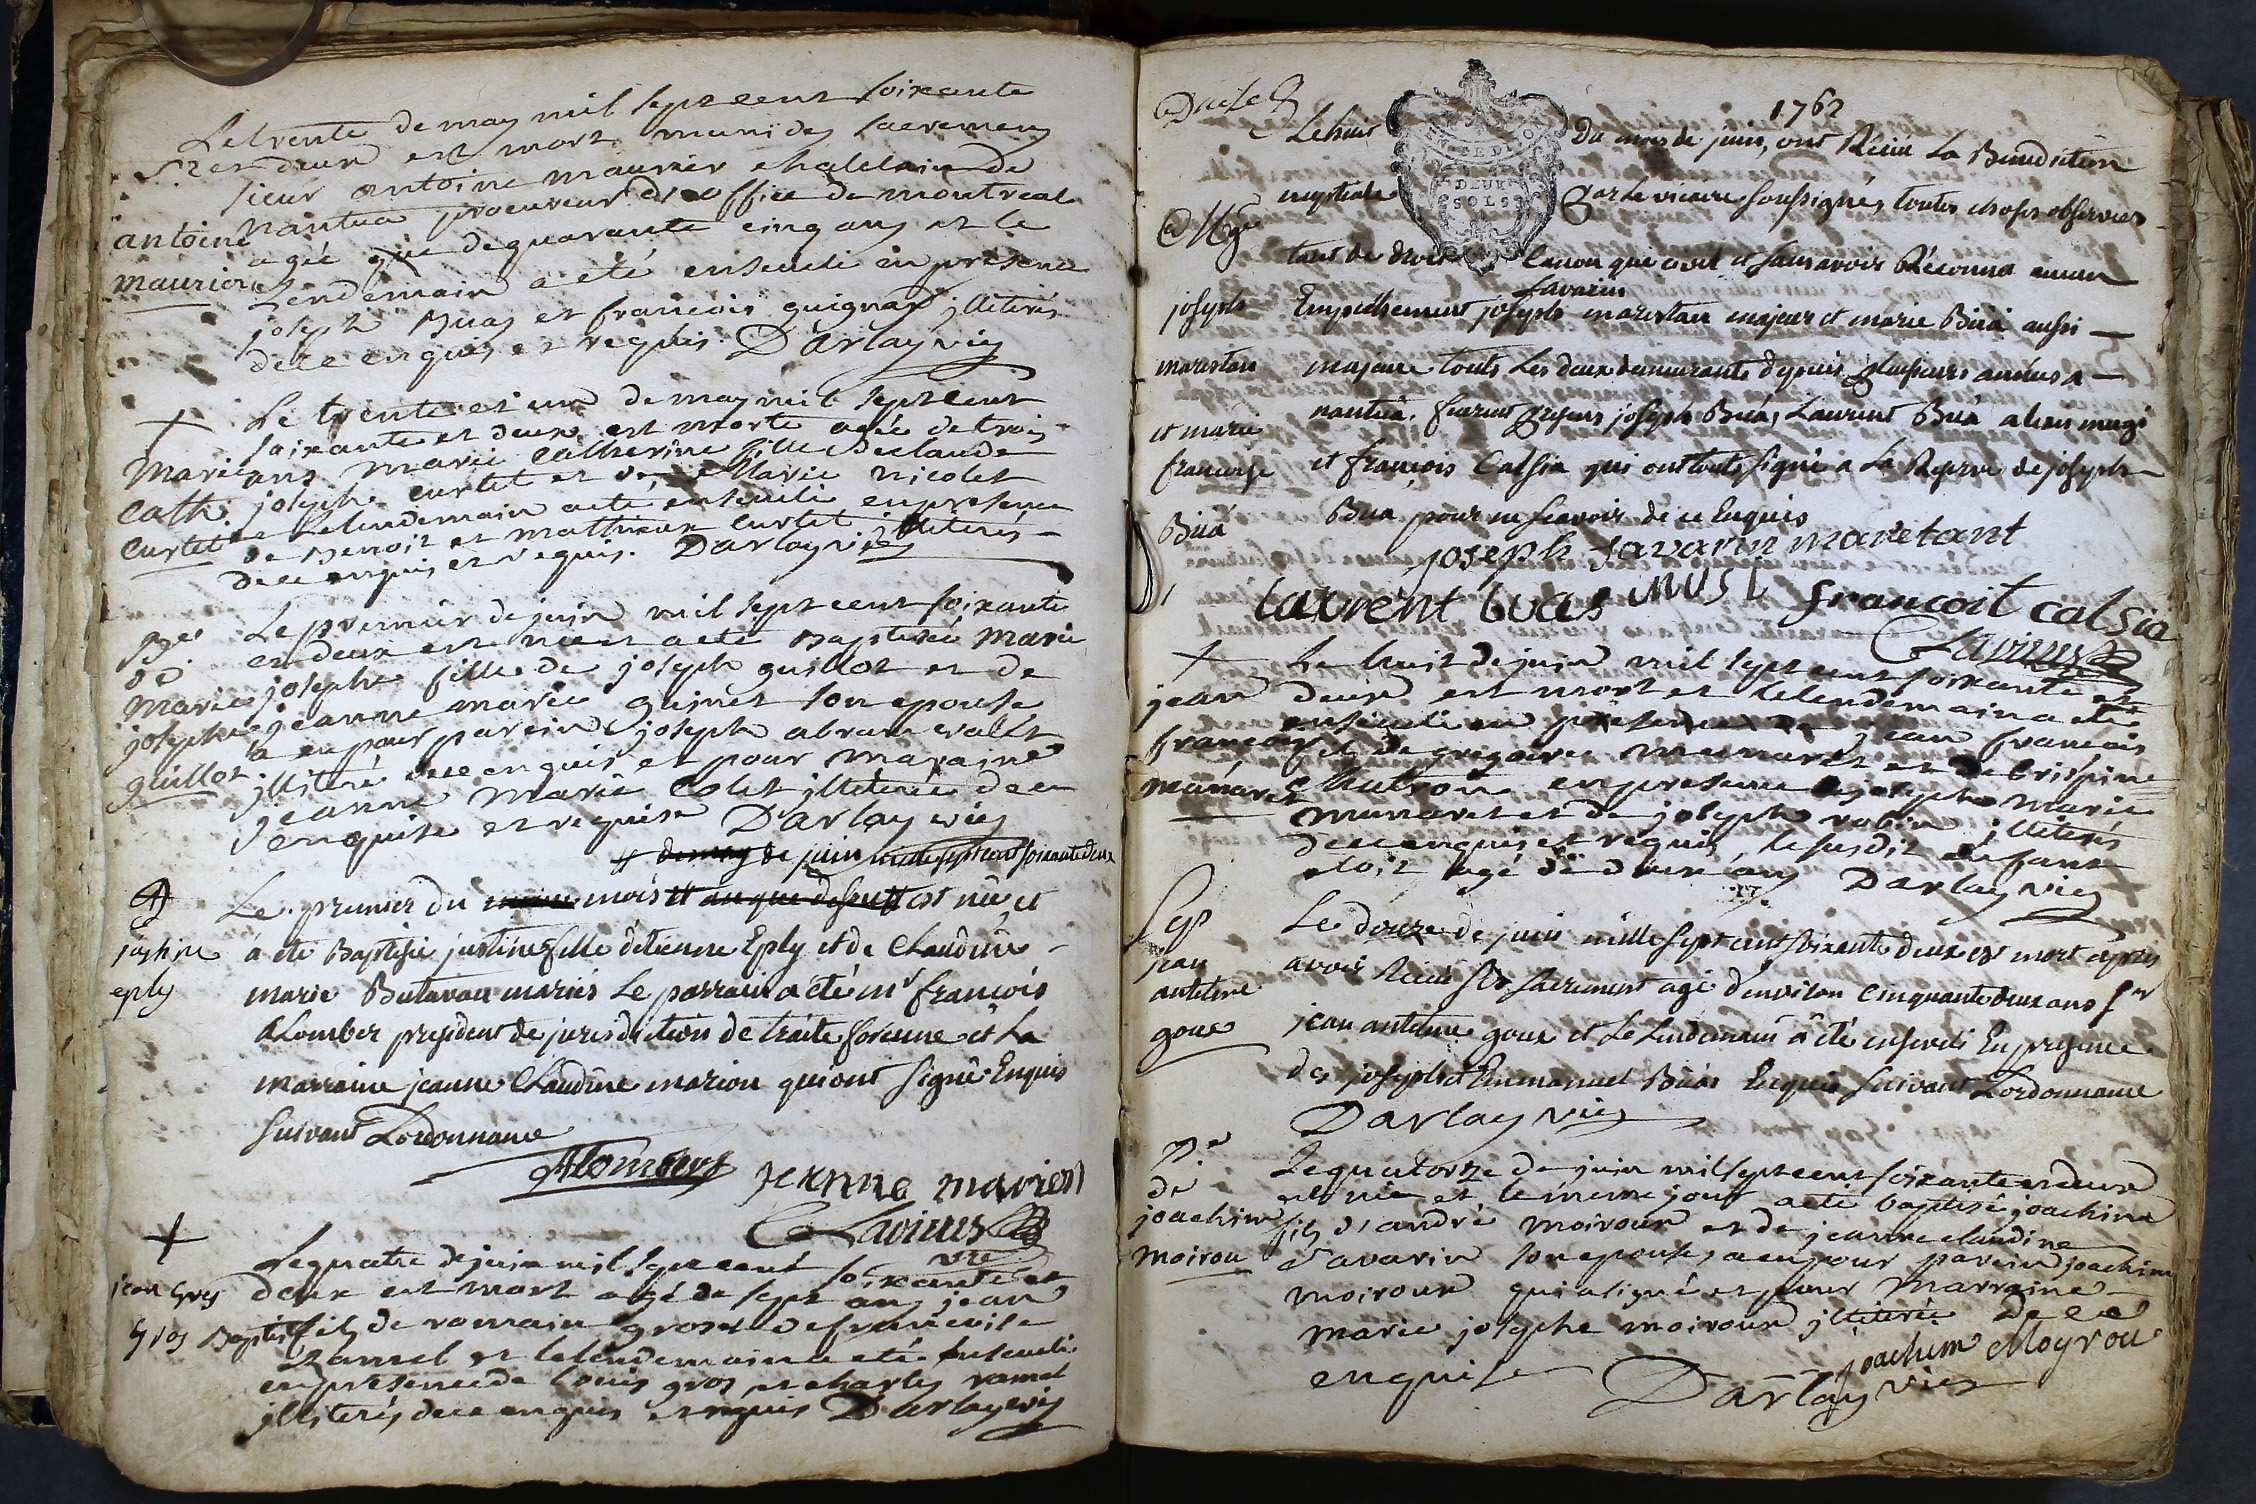 Le trente de may mil sept cent soixante
et deux est mort muni des sacremens
sieur antoine maurier chatelain de
nantua procureur d'office de montreal
agé de quarante cinq ans et le
lendemain a eté enseveli en presence
joseph Buas et francois guignard jlliterés
de ce enquis et requis. Darlay vic
antoine
maurier
Le trente et un de may mil sept cent
soixante et deux est morte agée de trois
ans marie catherine fille de claude
joseph curtet et de marie nicolet
et le lendemain a eté enseveli en presence
de Benoit et mathieux curtet jlliterés
de ce enquis et requis. Darlay vic
marie
cath.
curtet
Le premier de juin mil sept cent soixante
et deux est née et a eté Baptisée marie
josephe fille de joseph guillot et de
jeanne marie guinet son epouse
a eu pour parein joseph abram
jlliteré de ce enquis et pour maraine
jeanne marie Colet jlliterée de ce
enquise et requise Darlay vic
Bé
de
marie
josephe
guillot
# de may de juin mille sept cent soixante deux
Le premier du même mois et an que dessus # est née et
a été Baptisée justine fille d'étienne Eply et de Claudine
marie Butavau mariés Le parrain a été mr françois
aLomber president de jurisdiction de traite foraine et La
marraine jeanne Claudine marion qui ont signé Enquis
suivant Lordonnance
justine
eply
Alombert jeanne marion
Lavirus
vic
Le quatre de juin mil sept cent soixante et
deux est mort agé de sept ans jean
Baptiste fils de romain gros et de francoise
ramel et le lendemain a eté enseveli
en presence de louis gros et charles ramel
jlliterés de ce enquis et requis Darlay vic
jean
gros
1762
Le huit du mois de juin, ont Réçeu La Benediction
nuptiale par Le vicaire soussigné, toutes choses observées
tant de droit Canon que civil et sans avoir Réconnu aucun
savarin
Empechement joseph maretan majeur et marie Buà aussi
majeure touts Les deux demeurants depuis plusieurs années a
nantua. furent presens joseph Buà, Laurent Buà alias mugi
et françois Calsia qui ont touts signé a La Reserve de joseph
Bua pour ne scavoir de ce Enquis
Mge
joseph
maretan
et marie
francoise
Buà
DEUX
SOLS
joseph savarin maretant
laurent buas musi francoit calsia
Lavirus
Le huit de juin mil sept cent soixante et
deux est mort et le lendemain a eté
enseveli en presence de jean francois
fils de gregoire munaret et de crispine
en presence de joseph marie
munaret et de joseph robin jlliterés
de ce enquis et requis, le susdit enfant
etoit agé de deux ans Darlay vic
jean
francois
munaret
Le douze de juin mille sept cent soixante deux est mort après
avoir Réçeu Les sacrement agé d'environ cinquante deux ans sr
jean antoine goux et Le Lendemain a été enseveli En presence
des joseph et Emmanuel Buàs Enquis suivant Lordonnance
Darlay vic
Sep
jean
antoine
goux
Le quatorze de juin mil sept cent soixante et deux
est née et le meme jour a eté baptisé joachim
fils d'andré moiroux et de jeanne claudine
savarin son epouse, a eu pour parein joachim
moiroux qui a signé et pour marraine
marie josephe moiroux jlliterée de ce
enquise
Bé
de
joachim
moirou
joachim Moyrou
Darlay vic